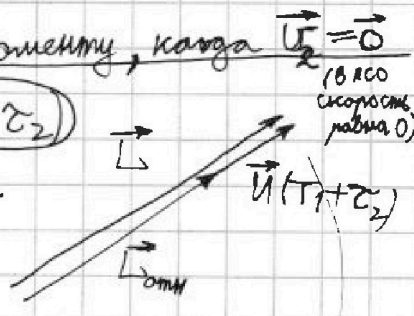 оменту, когда U⃗₂ = 0⃗
(в ЛСО
скорость
равна 0)
τ₂)
L⃗
U⃗(T₁+τ₂)
L⃗отн